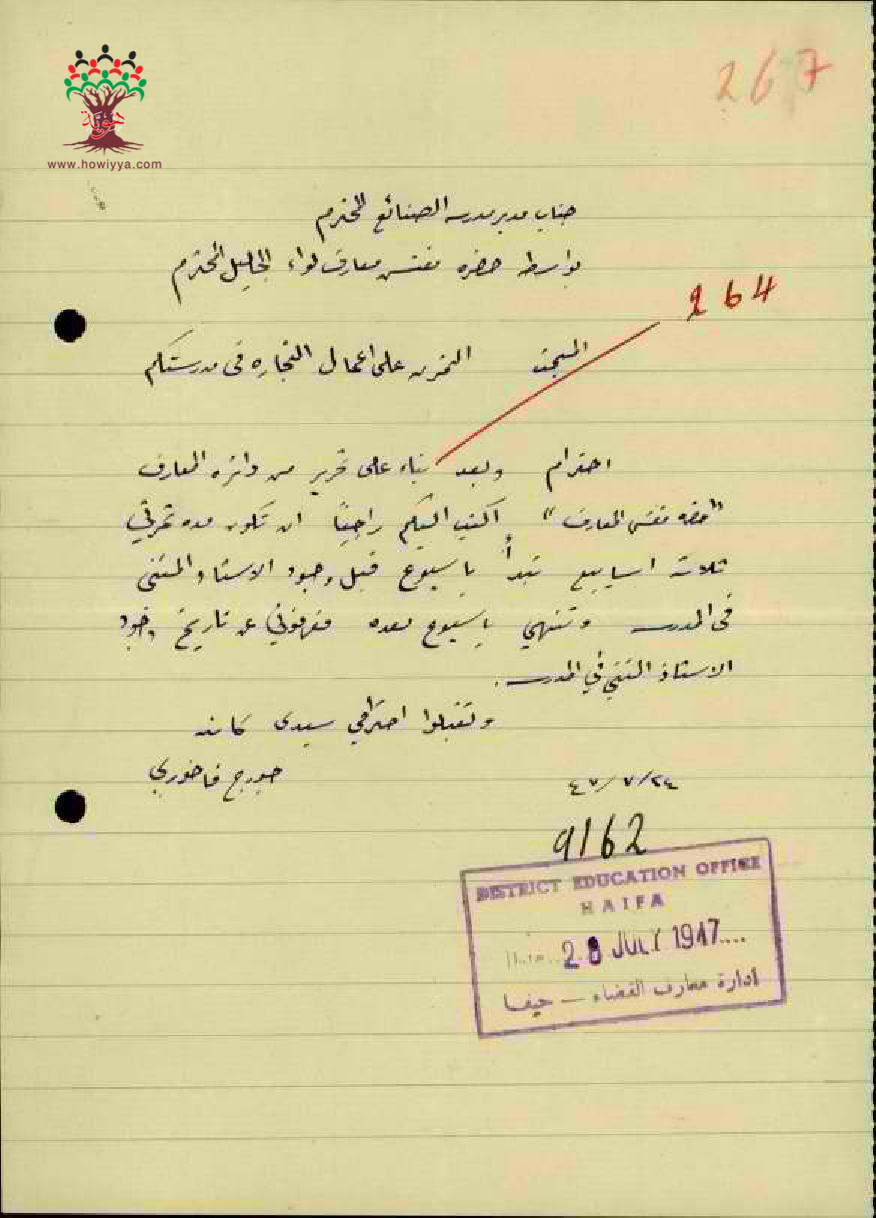 267
هوية
www.howiyya.com
جناب مدير مدرسه الصنائع المحترم
بواسطة حضره مفتش معارف لواء الجليل المحترم
264
المبحث التمرين على اعمال التجاره في مدرستكم
احترام وبعد بناء على تحرير من دائره المعارف
مفتش المعارف" أكتب اليكم راجياً ان تكون مده تمرني
ثلاثة اسابيع تبدأ باسبوع قبل وجود الاستاذ
في المدرسه وتنتهي باسبوع بعده عن تاريخ وجود
الاستاذ في المدرسه.
وتقبلوا احترامي سيدي
جورج فاخوري
٢٤/٧/٤٧
9162
DISTRICT EDUCATION OFFICE
HAIFA
28 JULY 1947
ادارة معارف القضاء – حيفا